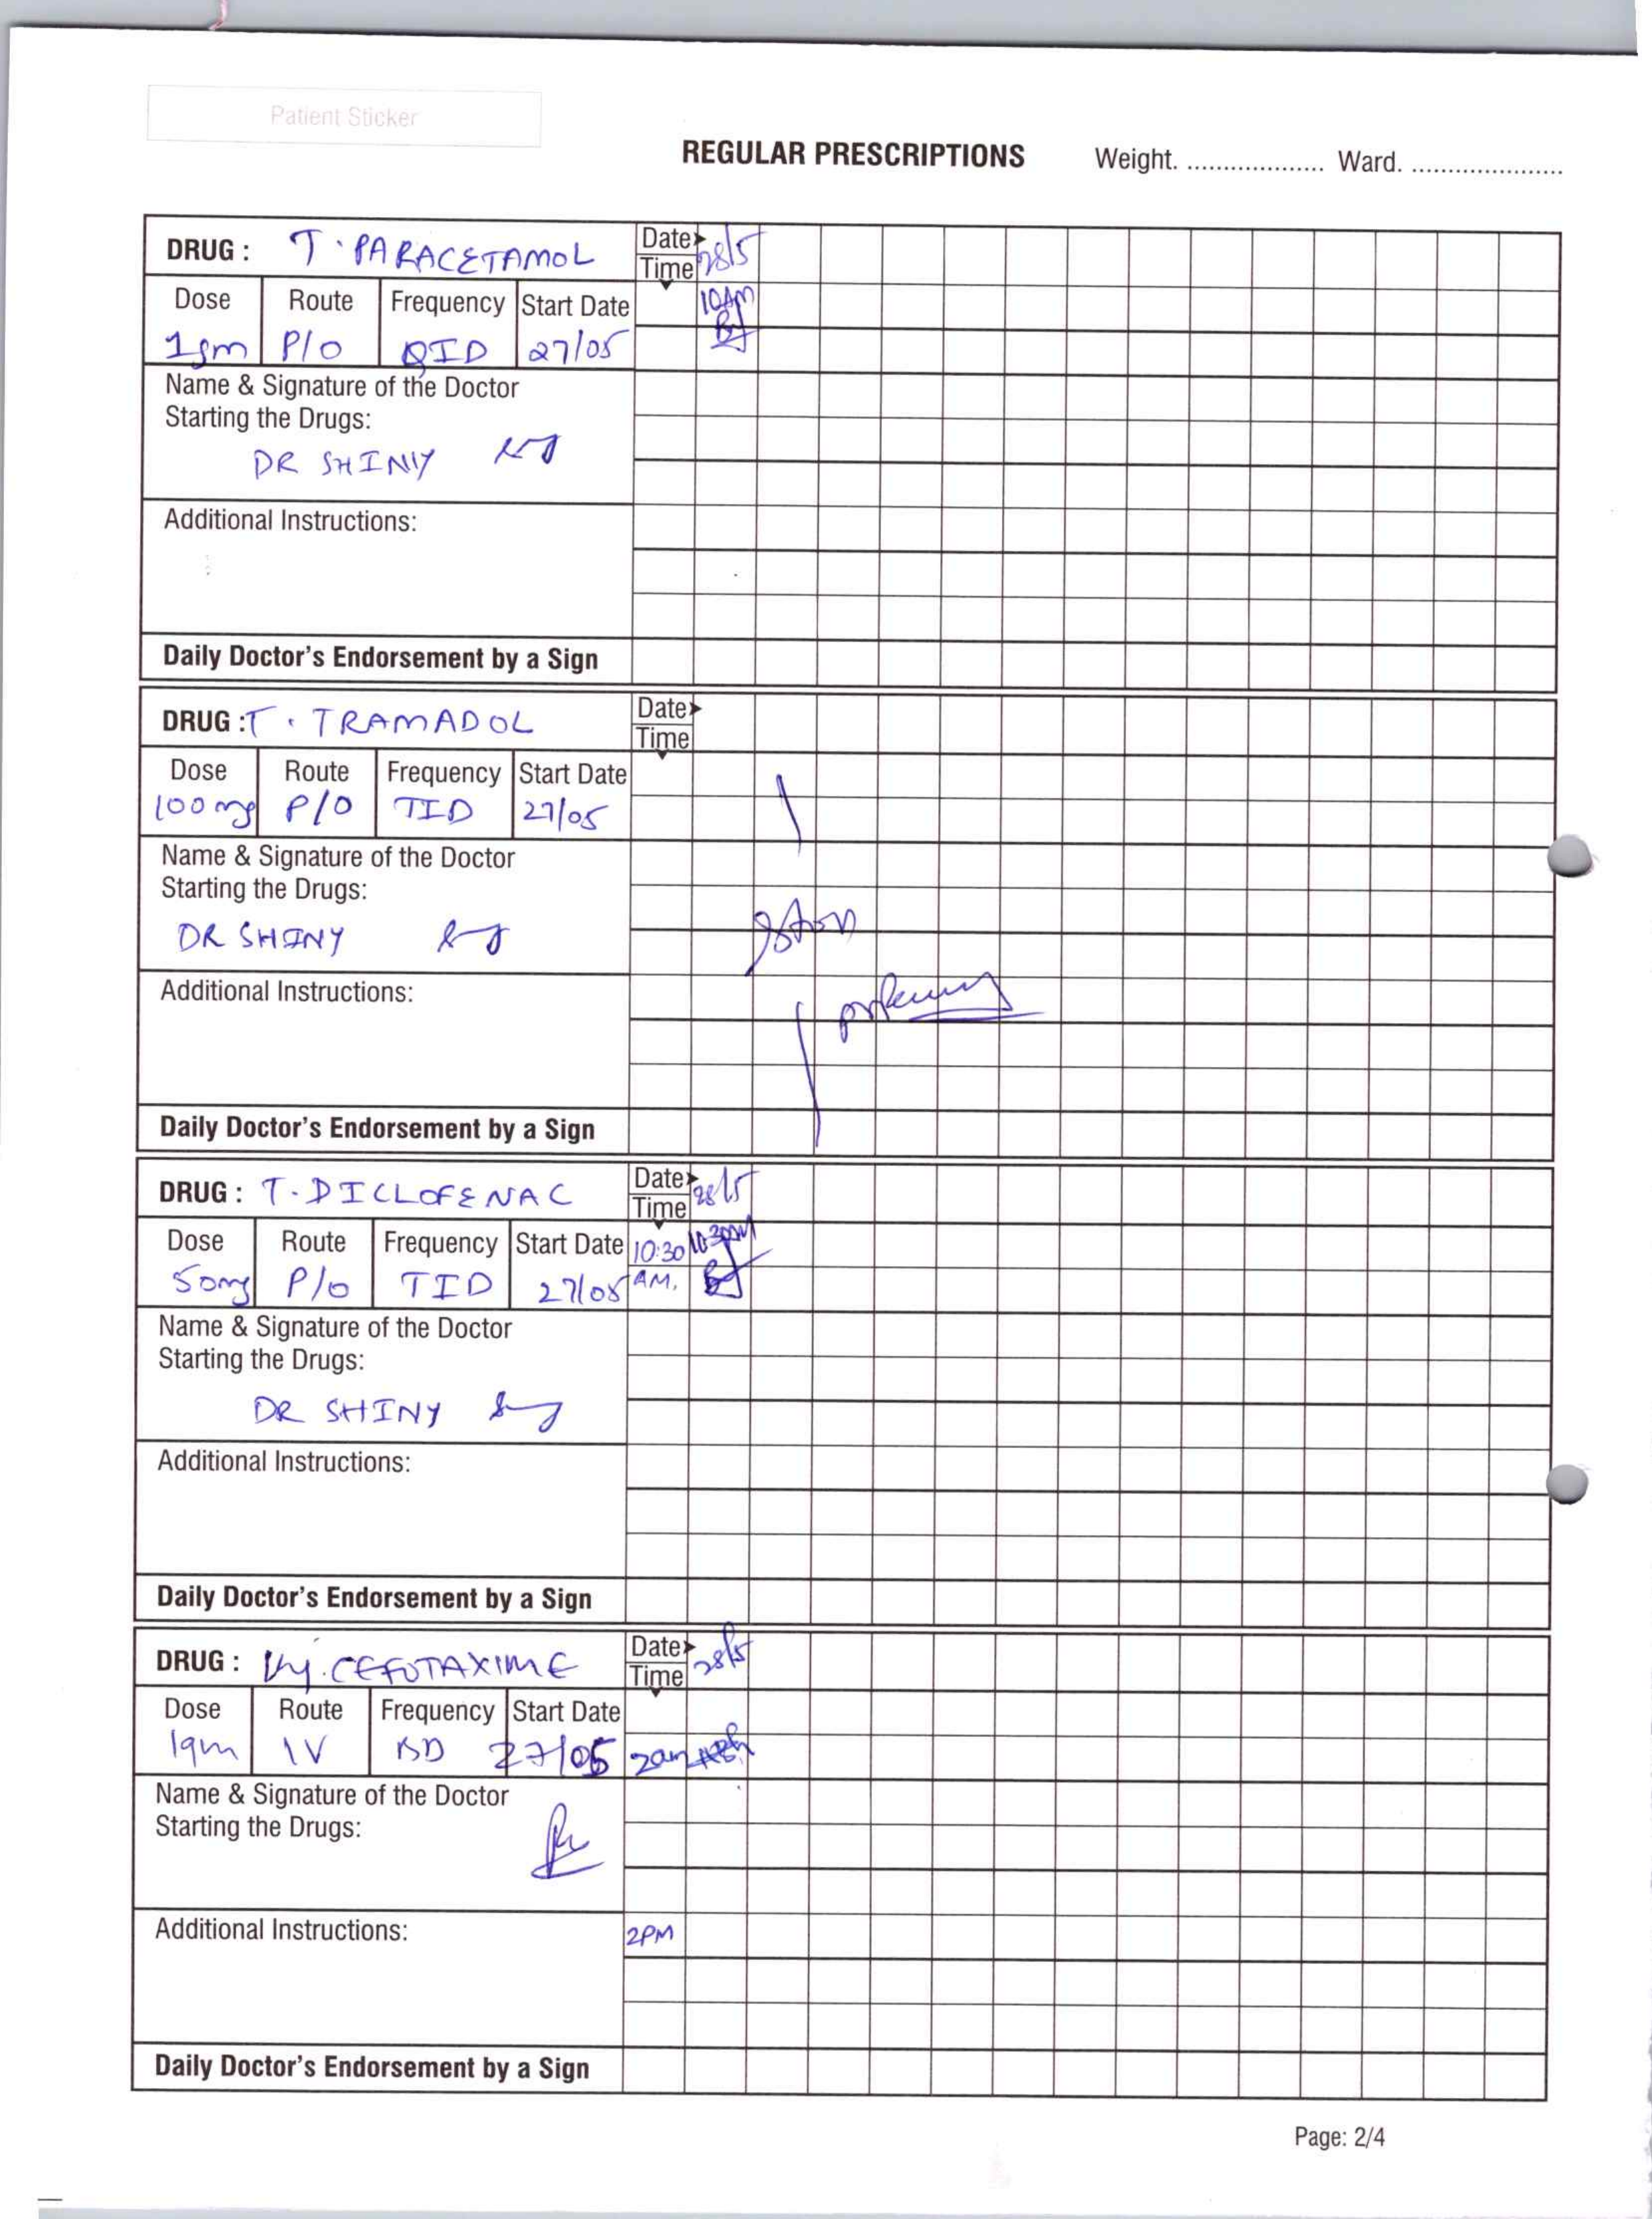 Patient Sticker
REGULAR PRESCRIPTIONS Weight. ................... Ward. .....................
DRUG : T. PARACETAMOL Date 28/5
Time
Dose Route Frequency Start Date 10AM
1gm P/O QID 27/05
Name & Signature of the Doctor
Starting the Drugs:
DR SHINY
Additional Instructions:
Daily Doctor's Endorsement by a Sign
DRUG : T. TRAMADOL Date
Time
Dose Route Frequency Start Date
100mg P/O TID 27/05
Name & Signature of the Doctor
Starting the Drugs:
DR SHINY
Additional Instructions:
Daily Doctor's Endorsement by a Sign
DRUG : T. DICLOFENAC Date 28/5
Time
Dose Route Frequency Start Date 10:30 10:30AM
50mg P/O TID 27/05 AM.
Name & Signature of the Doctor
Starting the Drugs:
DR SHINY
Additional Instructions:
Daily Doctor's Endorsement by a Sign
DRUG : Inj. CEFOTAXIME Date 28/5
Time
Dose Route Frequency Start Date
1gm IV BD 27/05 2am
Name & Signature of the Doctor
Starting the Drugs:
Additional Instructions: 2PM
Daily Doctor's Endorsement by a Sign
Page: 2/4